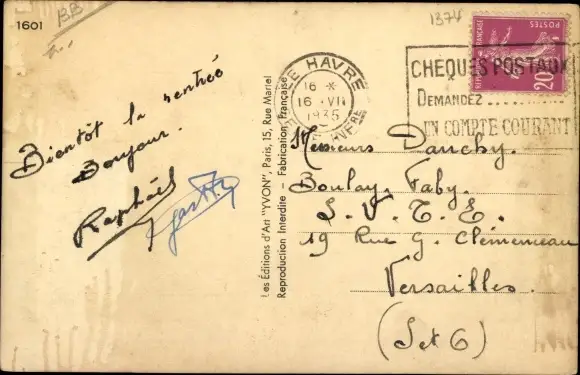 1601
BB
1374
Bientôt la rentrée
Bonjour.
Raphaël
Les Éditions d'Art "YVON", Paris, 15, Rue Martel
Reproduction Interdite - Fabrication Française
LE HAVRE
16 -*
16 -VII
1935
CHÈQUES POSTAUX
DEMANDEZ ..........
UN COMPTE COURANT
RÉPUBLIQUE FRANÇAISE
POSTES
20c
Messieurs Danchy.
Boulay. Faby.
S. V. T. E.
19 Rue G. Clémenceau
Versailles.
(S et O)